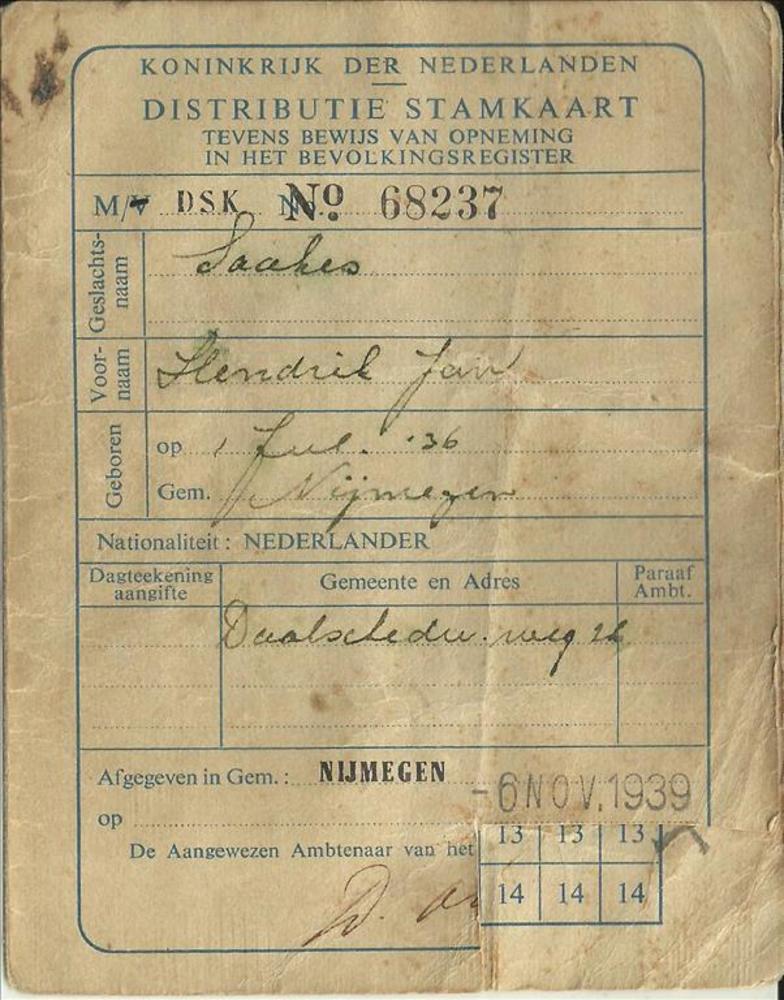 KONINKRIJK DER NEDERLANDEN
DISTRIBUTIE STAMKAART
TEVENS BEWIJS VAN OPNEMING
IN HET BEVOLKINGSREGISTER
M/V DSK No. 68237
Geslachts-
naam
Saakes
Voor-
naam
Hendrik Jan
Geboren
op 1 Jul. '36
Gem. Nijmegen
Nationaliteit: NEDERLANDER
Dagteekening
aangifte
Gemeente en Adres
Paraaf
Ambt.
weg
Afgegeven in Gem.: NIJMEGEN
op
-6 NOV. 1939
De Aangewezen Ambtenaar van het
13 13 13
14 14 14